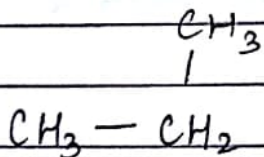 CH3
|
CH3 — CH2